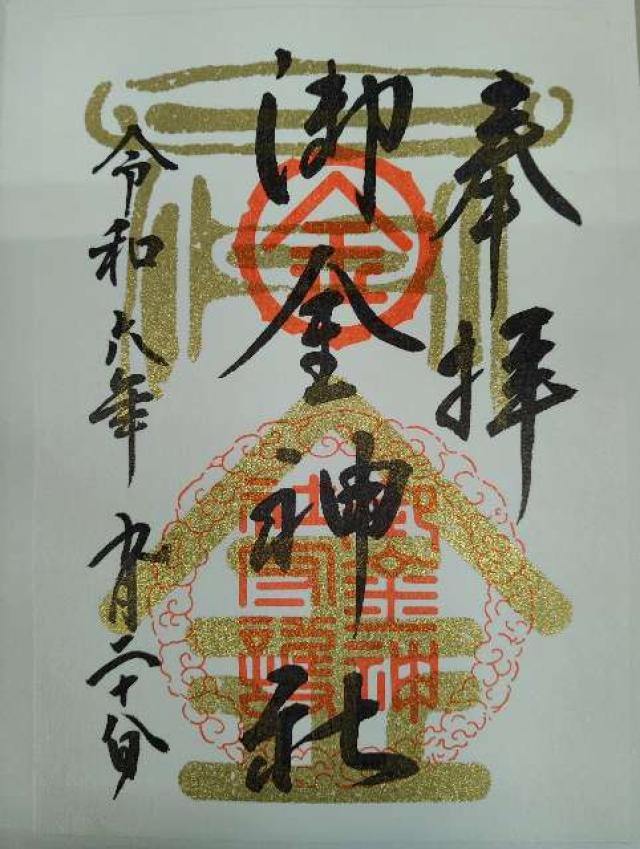 奉拝
御金神社
令和六年 九月二十八日
金
御金神